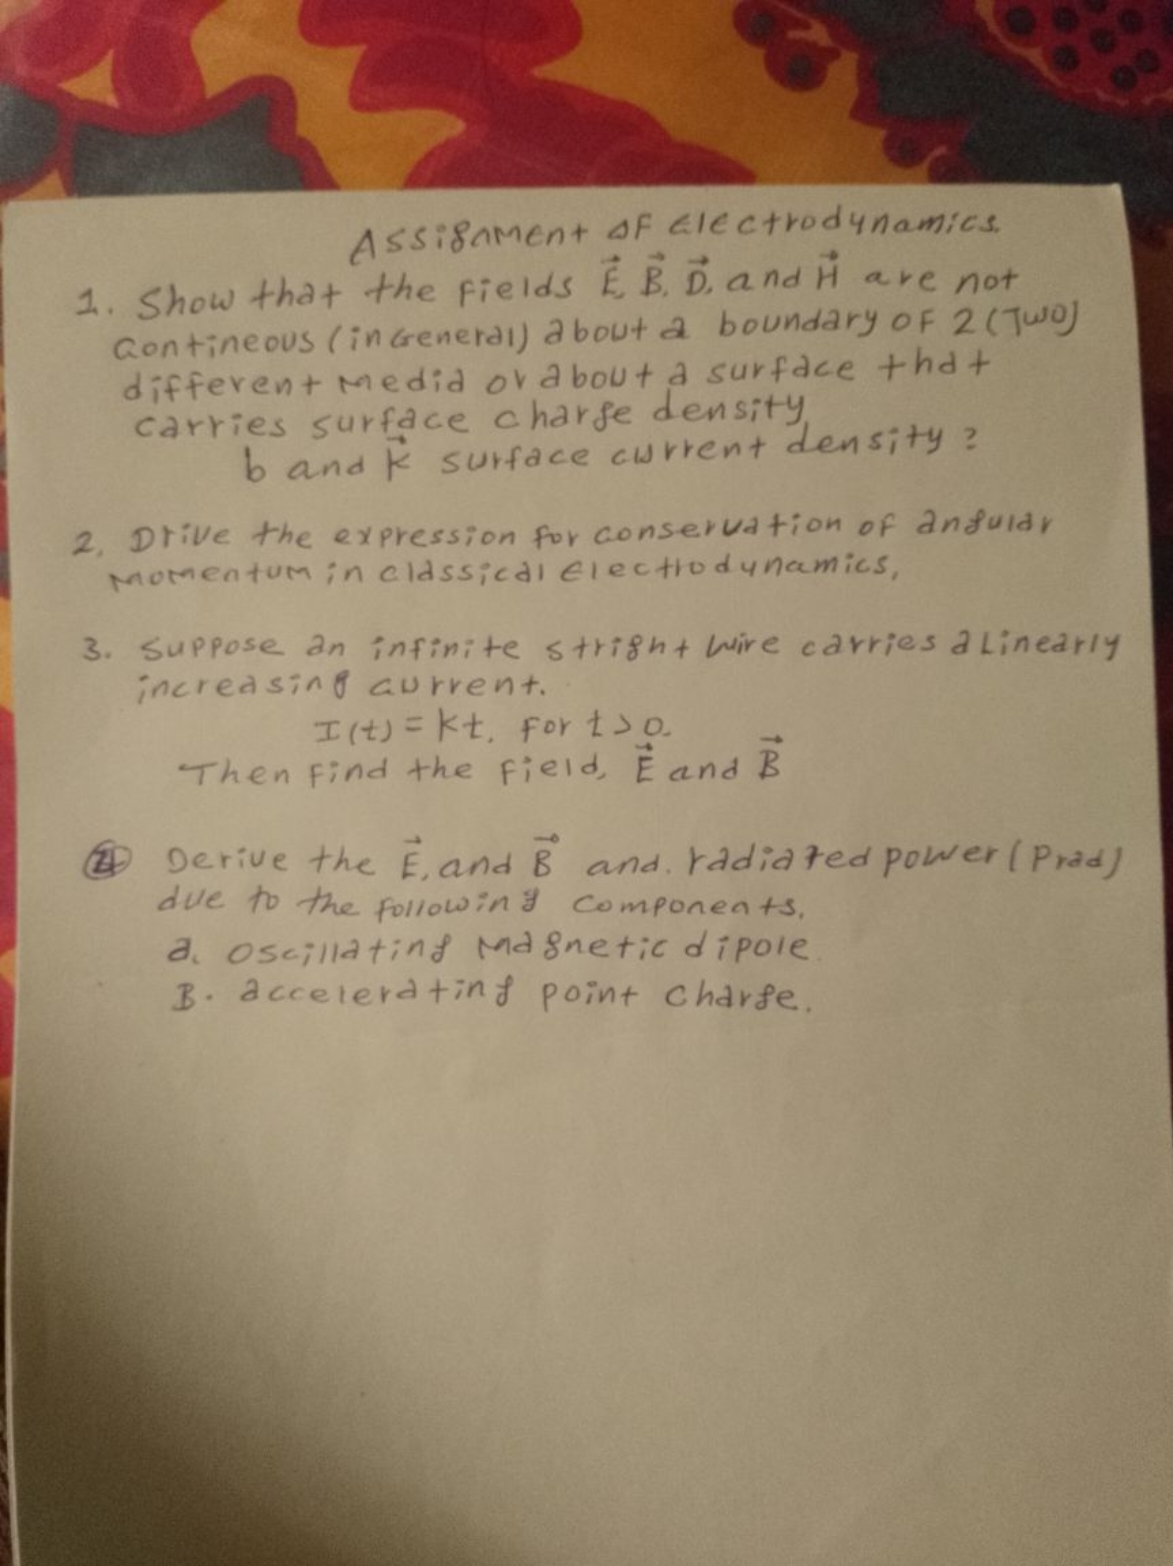 Assignment of Electrodynamics.
1. Show that the fields E⃗, B⃗, D⃗, and H⃗ are not
Contineous (in General) about a boundary of 2 (Two)
different media or about a surface that
carries surface charge density
b and K⃗ surface current density?
2, Drive the expression for conservation of angular
momentum in classical Electrodynamics,
3. Suppose an infinite stright wire carries a Linearly
increasing current.
I(t) = kt, for t > 0.
Then find the field, E⃗ and B⃗
④ Derive the E⃗, and B⃗ and. radiated power (Prad)
due to the following components,
a. Oscillating Magnetic dipole.
B. accelerating point charge.